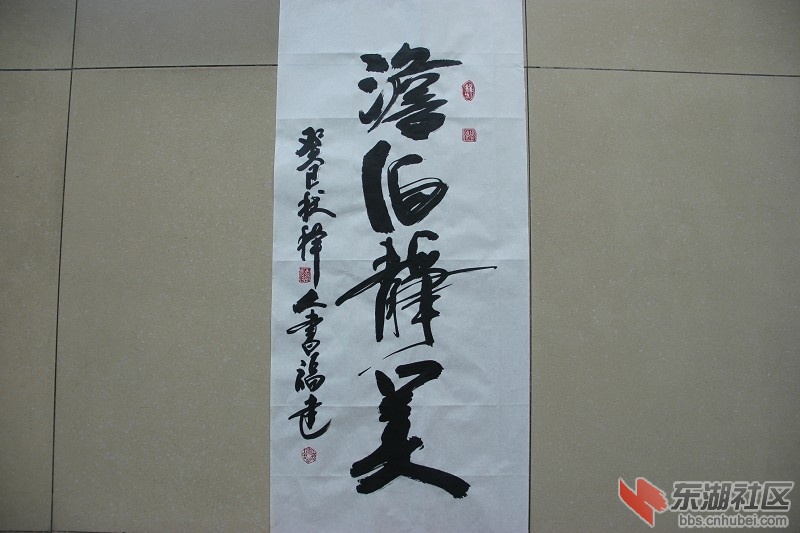 澹泊静美
癸巳秋
人书福建
东湖社区
bbs.cnhubei.com